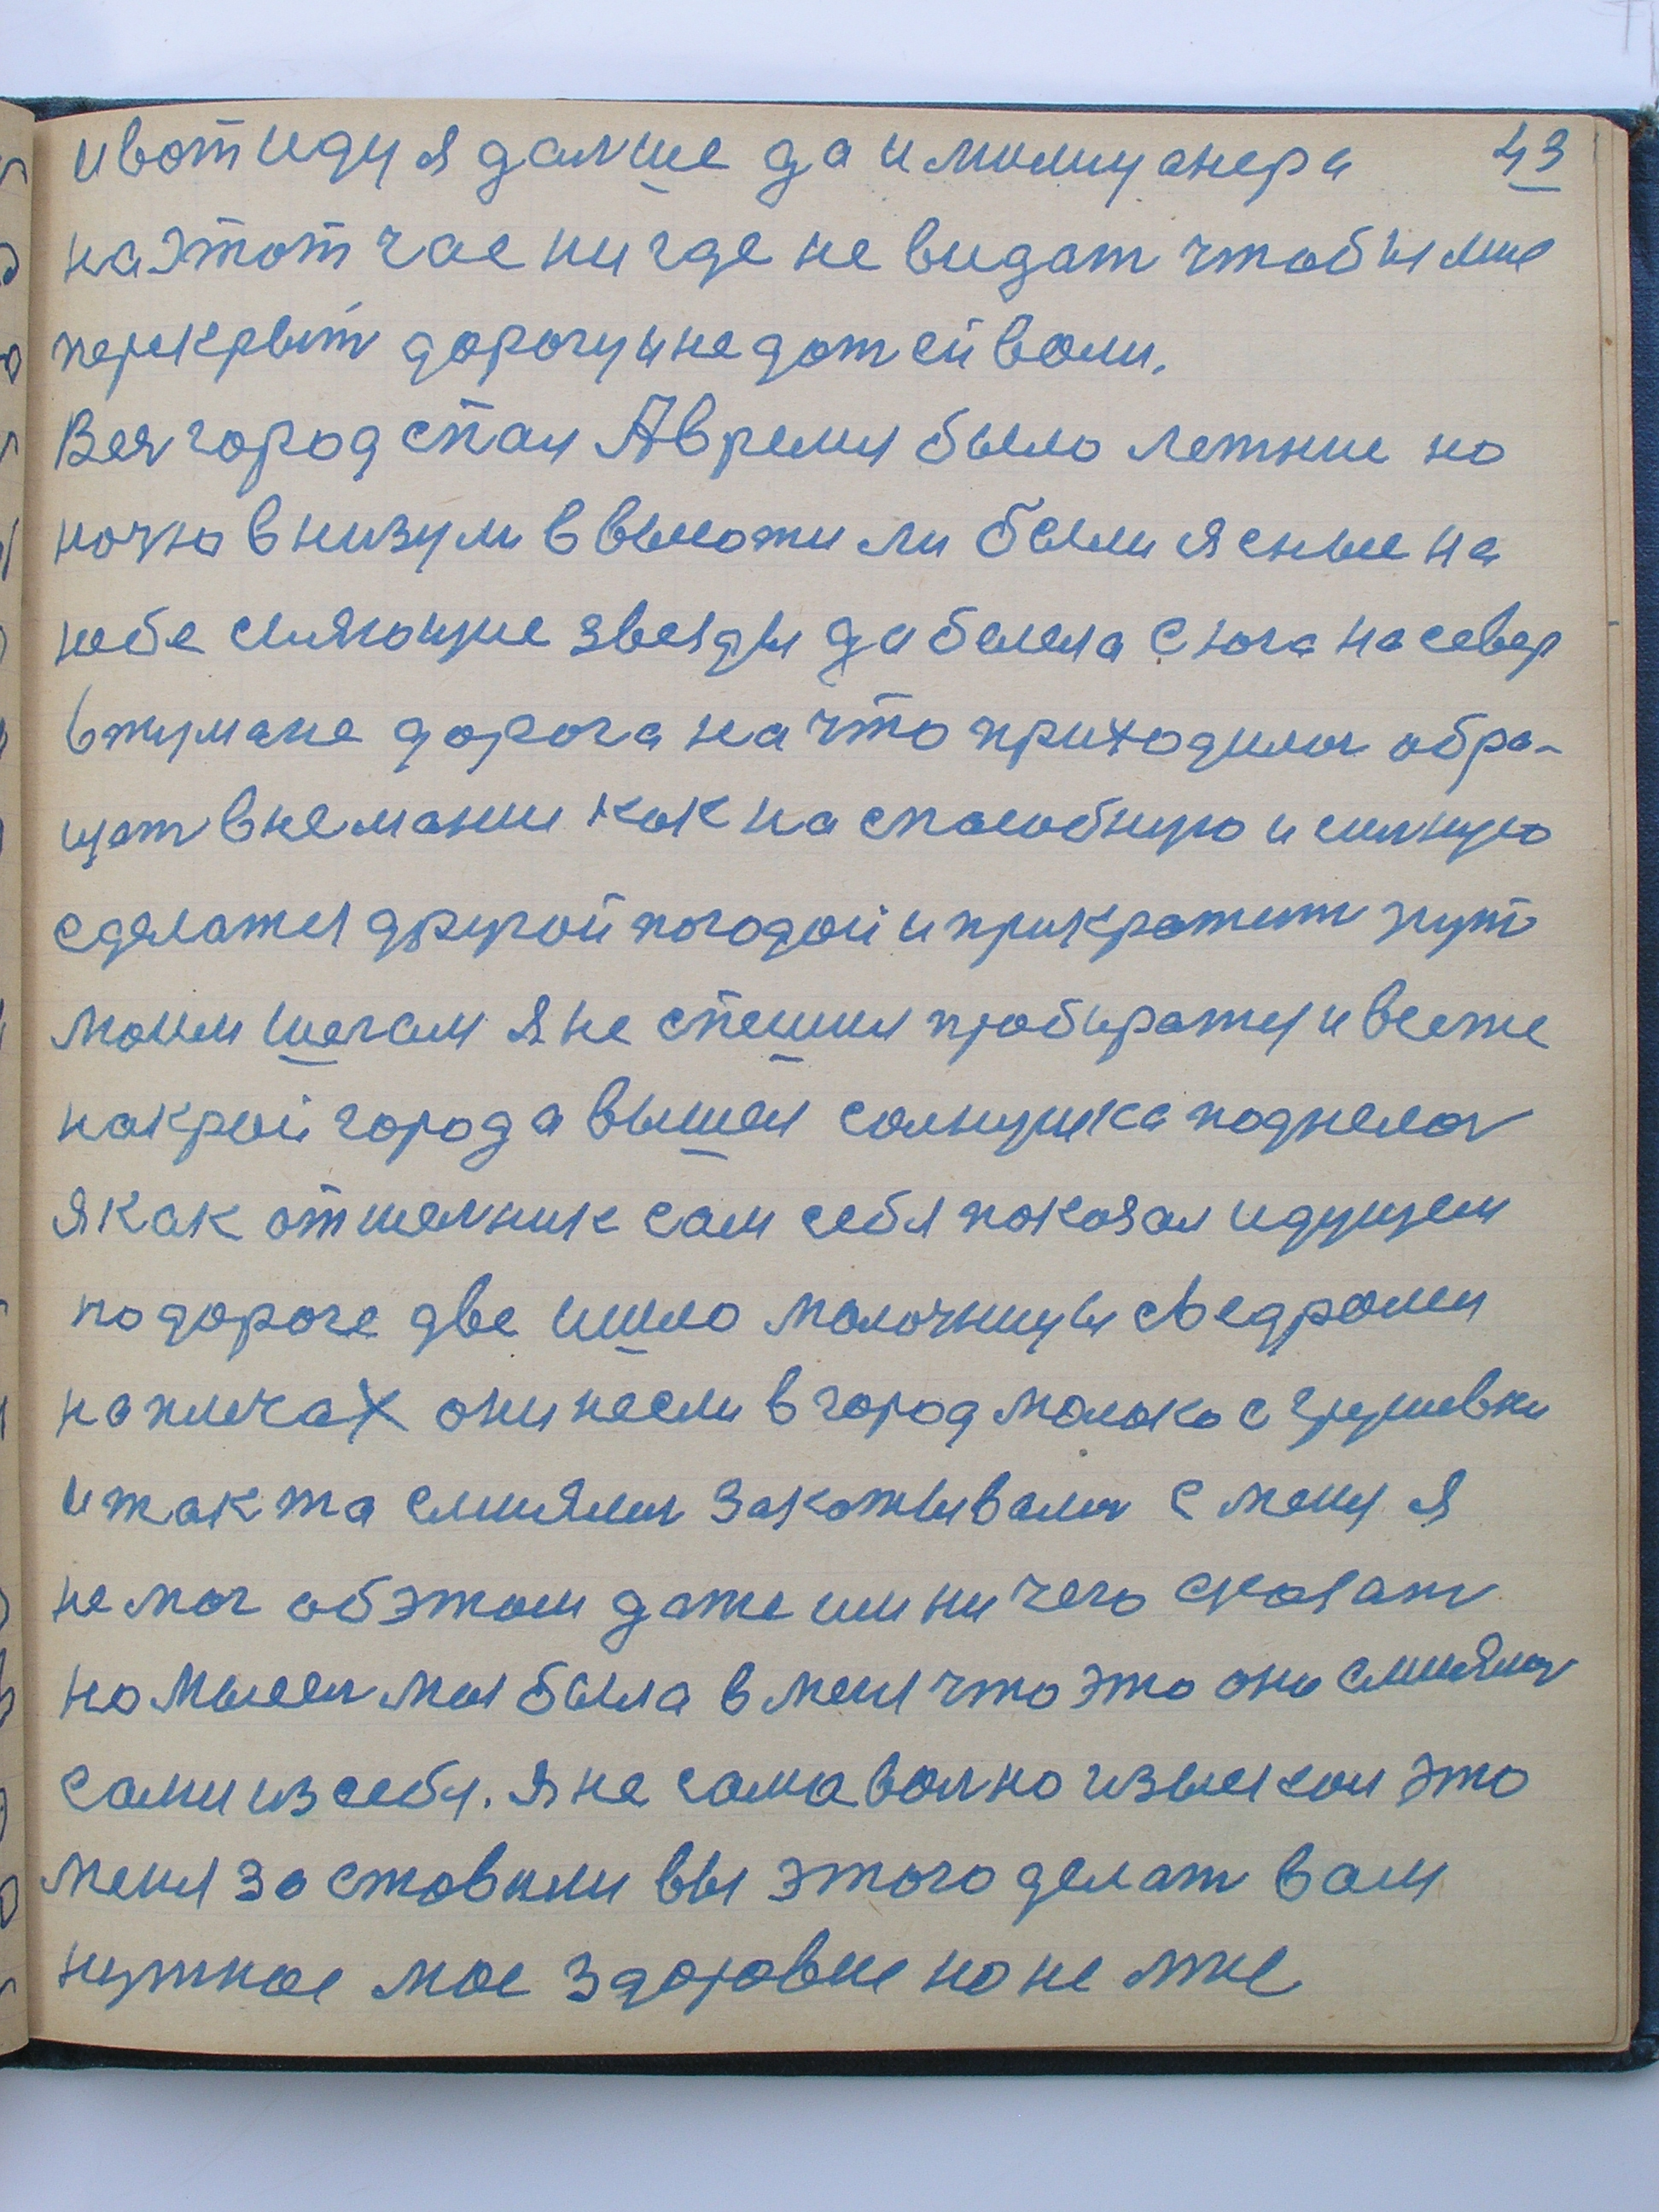 и вот иду я далше да и милицианера 43
на этот час ни где не видат чтобы мне
перекрыт дорогу и не дат ей воли.
Вся город спал А время было летние но
ночно внизу ли в высоти ли были ясные на
небе сияющие звезды да белела с юга на север
в тумане дорога на что приходилос обра-
щат внемании как на способную и силную
сделатся другой погодой и прикратит пут
моим шагам я не спешил пробиратся и все же
на край города вышел солнушка поднелос
я как отшелник сам себя показал идущем
по дороге две ишло молочницы сведрами
на плечах они несли в город молоко с грушевки
и так та смиялис закатывалис с меня я
не мог об этом даже им ни чего сказат
но мысел моя была в меня что это они смиялис
сами из себя. я не сама волно изыскал это
меня заставили вы этого делат вам
нужное мое здоровие но не мне